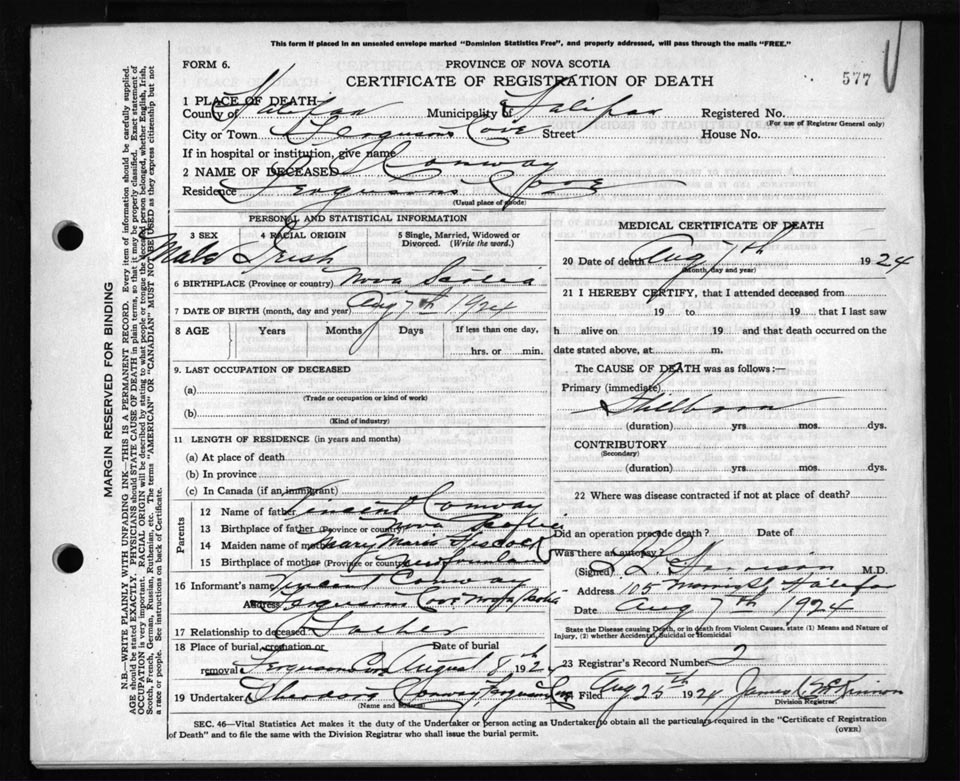 This form if placed in an unsealed envelope marked "Dominion Statistics Free", and properly addressed, will pass through the mails "FREE."
FORM 6.
PROVINCE OF NOVA SCOTIA
CERTIFICATE OF REGISTRATION OF DEATH
577
1 PLACE OF DEATH—
County of Halifax Municipality of Halifax Registered No.
(For use of Registrar General only)
City or Town Fergusons Cove Street House No.
If in hospital or institution, give name
2 NAME OF DECEASED Conway
Residence Fergusons Cove
(Usual place of abode)
PERSONAL AND STATISTICAL INFORMATION
3 SEX 4 RACIAL ORIGIN 5 Single, Married, Widowed or Divorced. (Write the word.)
Male Irish
6 BIRTHPLACE (Province or country) Nova Scotia
7 DATE OF BIRTH (month, day and year) Aug 7th 1924
8 AGE Years Months Days If less than one day,
hrs. or min.
9. LAST OCCUPATION OF DECEASED
(a)
(Trade or occupation or kind of work)
(b)
(Kind of industry)
11 LENGTH OF RESIDENCE (in years and months)
(a) At place of death
(b) In province
(c) In Canada (if an immigrant)
Parents
12 Name of father Vincent Conway
13 Birthplace of father (Province or country) Nova Scotia
14 Maiden name of mother Mary Marie Hiscock
15 Birthplace of mother (Province or country) Newfoundland
16 Informant's name Vincent Conway
Address Fergusons Cove Nova Scotia
17 Relationship to deceased Father
18 Place of burial, cremation or removal Date of burial
Fergusons Cove August 8th 1924
19 Undertaker Conway Ferguson Cove
(Name and address)
MEDICAL CERTIFICATE OF DEATH
20 Date of death Aug 7th 1924
(Month, day and year)
21 I HEREBY CERTIFY, that I attended deceased from
19 to 19 that I last saw
h alive on 19 and that death occurred on
date stated above, at m.
The CAUSE OF DEATH was as follows:—
Primary (immediate)
Stillborn
(duration) yrs. mos. dys.
CONTRIBUTORY
(Secondary)
(duration) yrs. mos. dys.
22 Where was disease contracted if not at place of death?
Did an operation precede death? Date of
Was there an autopsy?
(Signed) M.D.
Address 105 Morris St Halifax
Date Aug 7th 1924
State the Disease causing Death, or in death from Violent Causes, state (1) Means and Nature of
Injury, (2) whether Accidental, Suicidal or Homicidal
23 Registrar's Record Number 2
Filed Aug 25th 1924 James McKinnon
Division Registrar.
SEC. 46—Vital Statistics Act makes it the duty of the Undertaker or person acting as Undertaker to obtain all the particulars required in the "Certificate of Registration
of Death" and to file the same with the Division Registrar who shall issue the burial permit.
(OVER)
MARGIN RESERVED FOR BINDING
N.B.—WRITE PLAINLY WITH UNFADING INK—THIS IS A PERMANENT RECORD. Every item of information should be carefully supplied.
AGE should be stated EXACTLY. PHYSICIANS should STATE CAUSE OF DEATH in plain terms, so that it may be properly classified. Exact statement of
OCCUPATION is very important. RACIAL ORIGIN will be described by stating to what people or tongue the deceased person belonged, whether English, Irish,
Scotch, French, German, Russian, Ruthenian, etc. The terms "AMERICAN" OR "CANADIAN" MUST NOT BE USED as they express citizenship but not
a race or people. See instructions on back of Certificate.